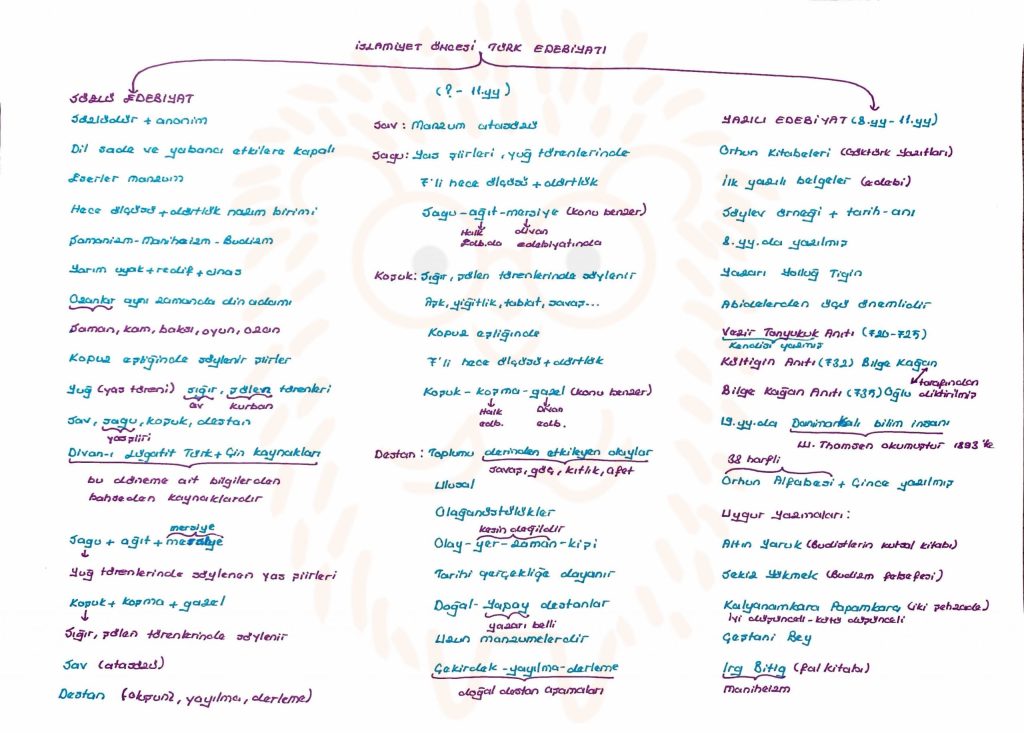 İSLAMİYET ÖNCESİ TÜRK EDEBİYATI
(? - 11.yy)
SÖZLÜ EDEBİYAT
Sözlüdür + anonim
Dil sade ve yabancı etkilere kapalı
Eserler manzum
Hece ölçüsü + dörtlük nazım birimi
Şamanizm - Maniheizm - Budizm
Yarım uyak + redif + cinas
Ozanlar aynı zamanda din adamı
Şaman, kam, baksı, oyun, ozan
Kopuz eşliğinde söylenir şiirler
Yuğ (yas töreni) sığır, şölen törenleri
av kurban
Sav, sagu, koşuk, destan
yas şiiri
Divan-ı Lügatit Türk + Çin kaynakları
bu döneme ait bilgilerden
bahseden kaynaklardır
mersiye
Sagu + ağıt + mersiye
Yuğ törenlerinde söylenen yas şiirleri
Koşuk + koşma + gazel
Sığır, şölen törenlerinde söylenir
Sav (atasözü)
Destan (oluşum, yayılma, derleme)
Sav: Manzum atasözü
Sagu: Yas şiirleri, yuğ törenlerinde
7'li hece ölçüsü + dörtlük
Sagu - ağıt - mersiye (konu benzer)
Halk Divan
Edb.da edebiyatında
Koşuk: Sığır, şölen törenlerinde söylenir
Aşk, yiğitlik, tabiat, savaş...
Kopuz eşliğinde
7'li hece ölçüsü + dörtlük
Koşuk - koşma - gazel (konu benzer)
Halk Divan
edb. edb.
Destan: Toplumu derinden etkileyen olaylar
savaş, göç, kıtlık, afet
Ulusal
Olağanüstülükler
kesin değildir
Olay - yer - zaman - kişi
Tarihi gerçekliğe dayanır
Doğal - Yapay destanlar
yazarı belli
Uzun manzumelerdir
Çekirdek - yayılma - derleme
doğal destan aşamaları
YAZILI EDEBİYAT (8.yy - 11.yy)
Orhun Kitabeleri (Göktürk Yazıtları)
İlk yazılı belgeler (edebi)
Söylev örneği + tarih - anı
8.yy.da yazılmış
Yazarı Yolluğ Tigin
Abidelerden üçü önemlidir
Vezir Tonyukuk Anıtı (720-725)
Kendisi yazmış
Kültigin Anıtı (732) Bilge Kağan
tarafından
Bilge Kağan Anıtı (735) Oğlu diktirilmiş
19.yy.da Danimarkalı bilim insanı
W. Thomsen okumuştur 1893'te
38 harfli
Orhun Alfabesi + Çince yazılmış
Uygur Yazmaları:
Altın Yaruk (Budistlerin kutsal kitabı)
Sekiz Yükmek (Budizm felsefesi)
Kalyanamkara Papamkara (iki şehzade)
İyi düşünceli - kötü düşünceli
Çaştani Bey
Irq Bitig (fal kitabı)
Maniheizm